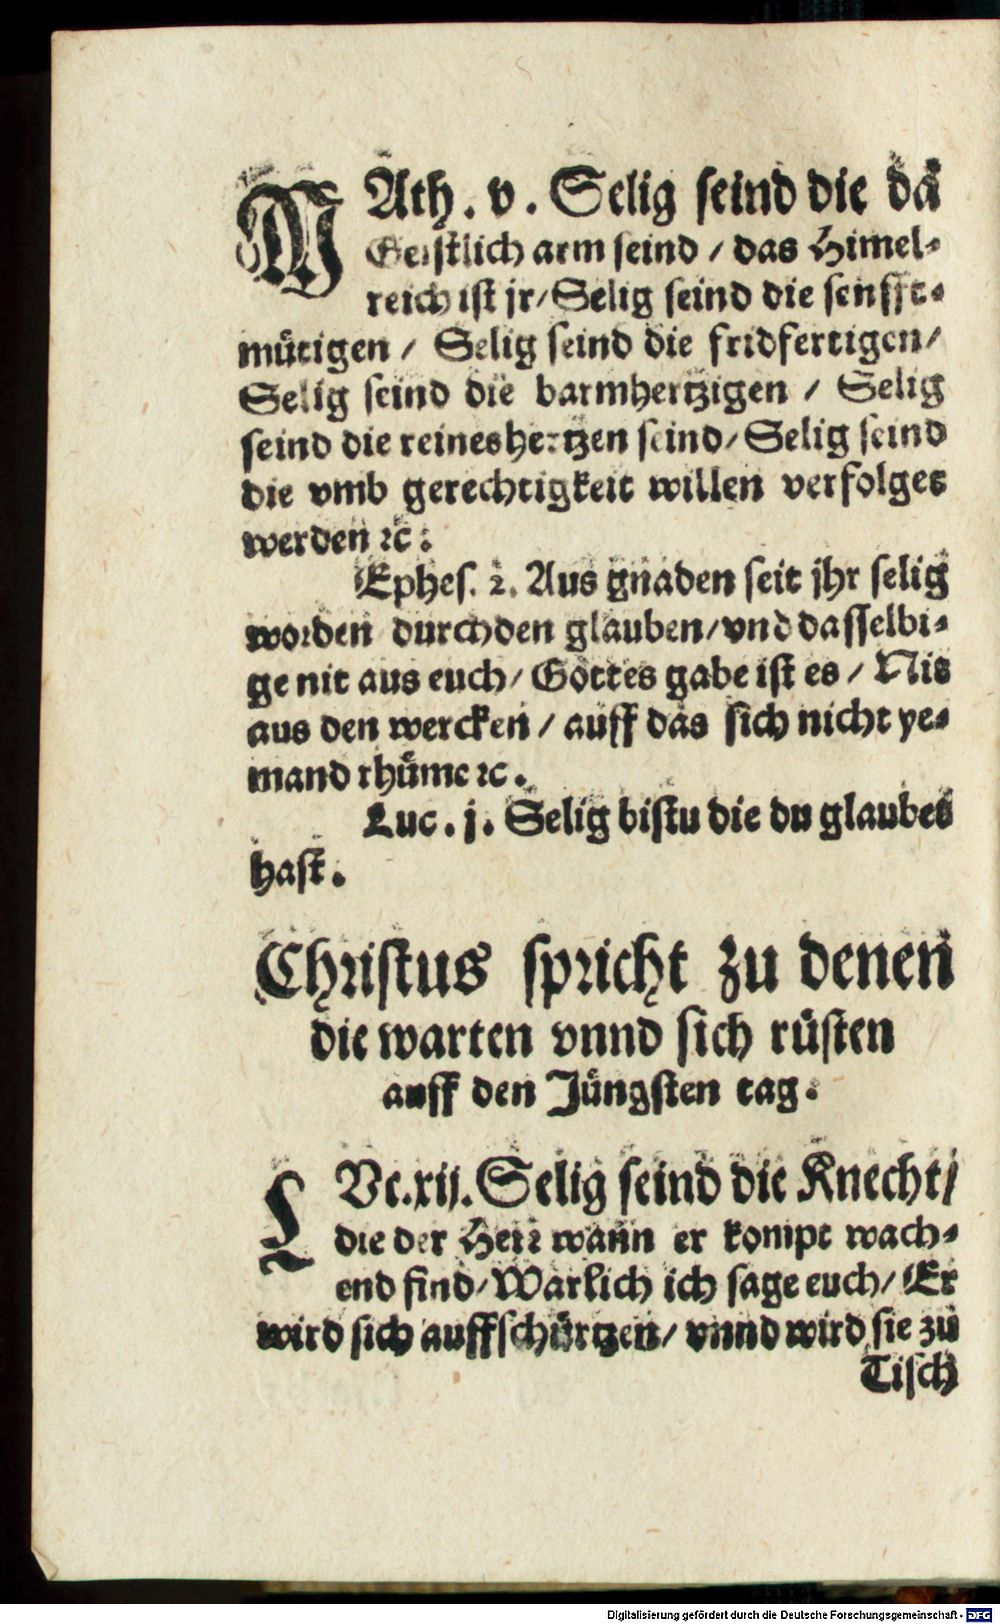 MAth. v. Selig seind die da
Geistlich arm seind / das Himel⸗
reich ist jr / Selig seind die senfft⸗
mütigen / Selig seind die fridfertigen /
Selig seind die barmhertzigen / Selig
seind die reines hertzen seind / Selig seind
die vmb gerechtigkeit willen verfolget
werden ꝛc.
Ephes. 2. Aus gnaden seit jhr selig
worden durch den glauben / vnd dasselbi⸗
ge nit aus euch / Gottes gabe ist es / Nit
aus den wercken / auff das sich nicht ye⸗
mand rhüme ꝛc.
Luc. j. Selig bistu die du glaubet
hast.
Christus spricht zu denen
die warten vnnd sich rüsten
auff den Jüngsten tag.
LVc. xij. Selig seind die Knecht /
die der Herr wann er kompt wach⸗
end find / Warlich ich sage euch / Er
wird sich auffschürtzen / vnnd wird sie zu
Tisch
Digitalisierung gefördert durch die Deutsche Forschungsgemeinschaft - DFG